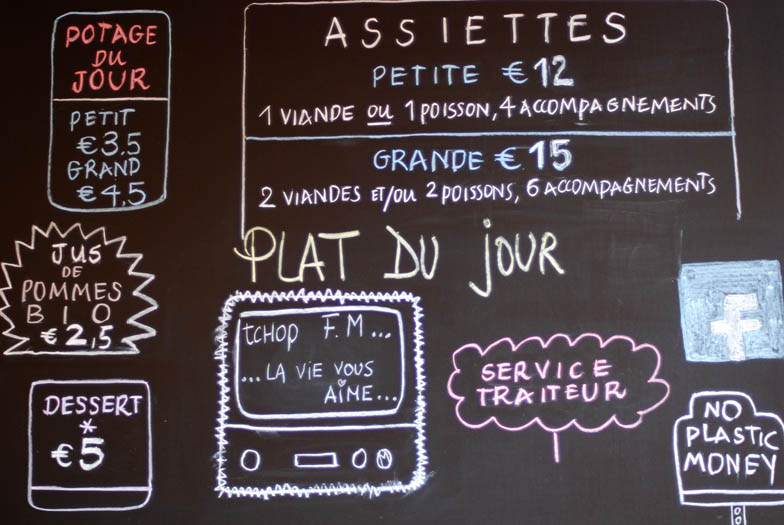 POTAGE
DU
JOUR
PETIT
€3.5
GRAND
€4,5
ASSIETTES
PETITE €12
1 VIANDE OU 1 POISSON, 4 ACCOMPAGNEMENTS
GRANDE €15
2 VIANDES ET/OU 2 POISSONS, 6 ACCOMPAGNEMENTS
JUS
DE
POMMES
BIO
€2,5
PLAT DU JOUR
tchop F.M...
...LA VIE VOUS
AIME...
f
SERVICE
TRAITEUR
DESSERT
*
€5
NO
PLASTIC
MONEY